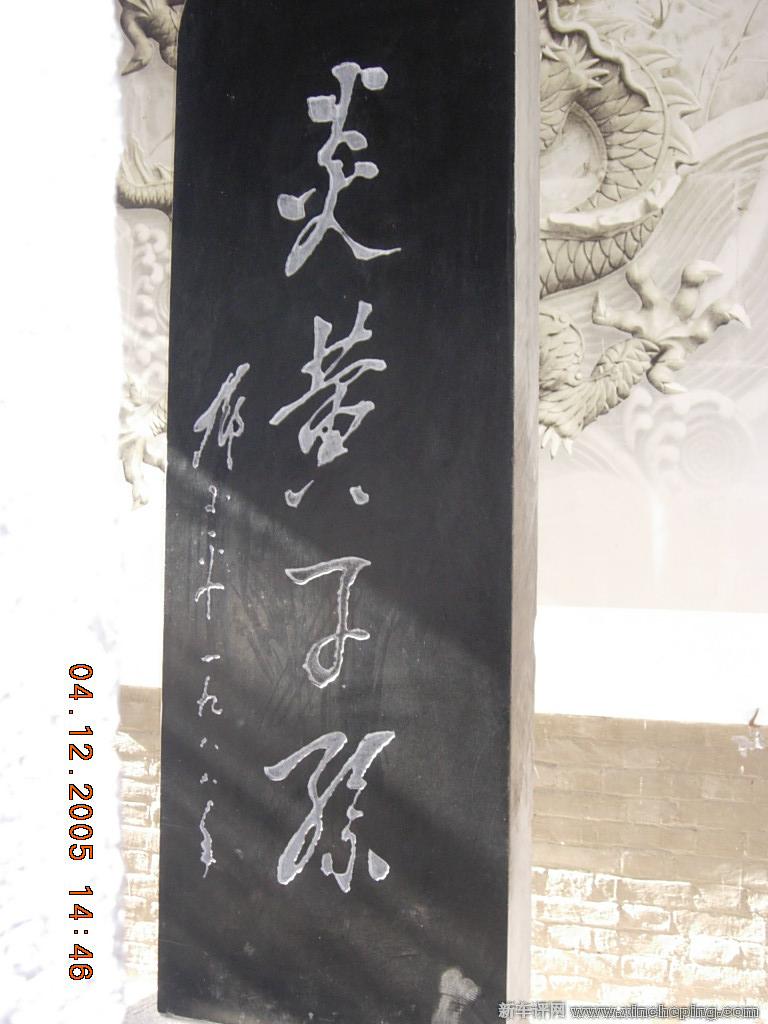 炎黄子孙
一九八八年
04.12.2005 14:46
新车评网 www.xincheping.com